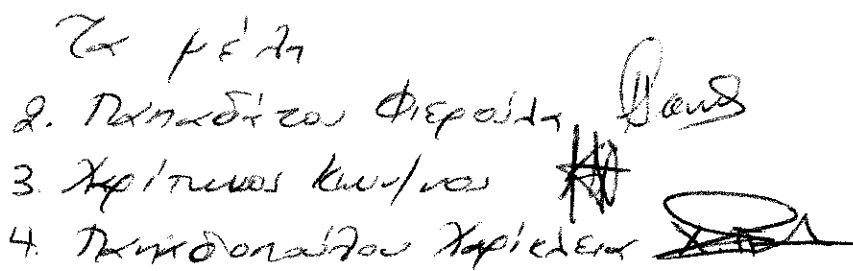 Τα μέλη
2. Παπαδάτου Φιερούλα
3. Χαρίτωνος Κων/νος
4. Παπαδοπούλου Χαρίκλεια